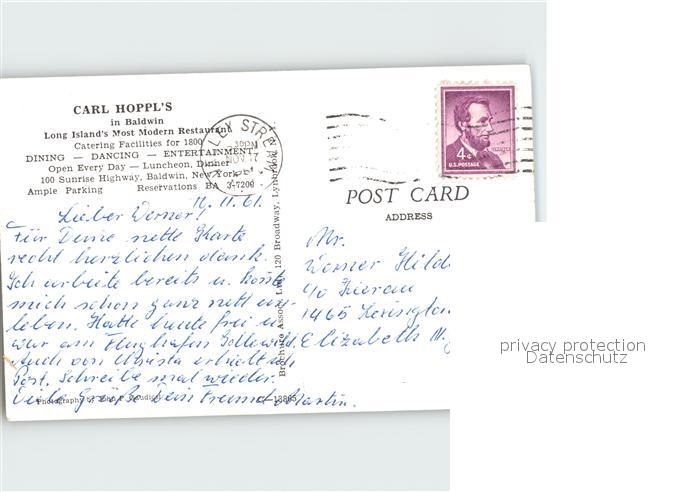 CARL HOPPL'S
in Baldwin
Long Island's Most Modern Restaurant
Catering Facilities for 1800
DINING — DANCING — ENTERTAINMENT
Open Every Day — Luncheon, Dinner
100 Sunrise Highway, Baldwin, New York
Ample Parking Reservations BA 3-7200
LEY STRE
30PM
NOV 17
4¢
U.S. POSTAGE
POST CARD
ADDRESS
11. 61.
Lieber Werner!
Für Deine nette Karte
recht herzlichen dank.
Ich arbeite bereits u.
mich schon ganz nett
leben. Hatte heute frei u.
war am Flughafen
Auch von Christa erhielt ich
Post. Schreibe mal wieder.
Viele Grüße Dein Freund Martin.
Mr.
Werner Hild
c/o
1465 Lexington
Elizabeth N.J
Brochure Associates, 120 Broadway, Lynbrook,
Photography by John P.
privacy protection
Datenschutz